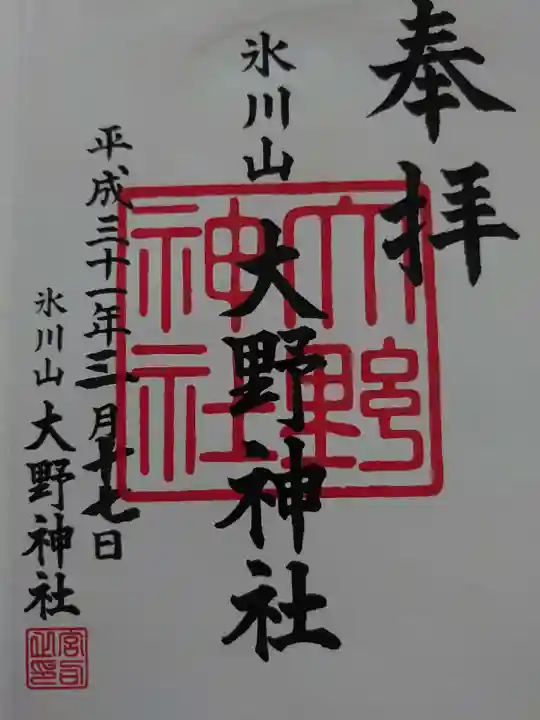 奉拝
氷川山 大野神社
大野神社
平成三十一年三月十七日
氷川山 大野神社
宮司之印